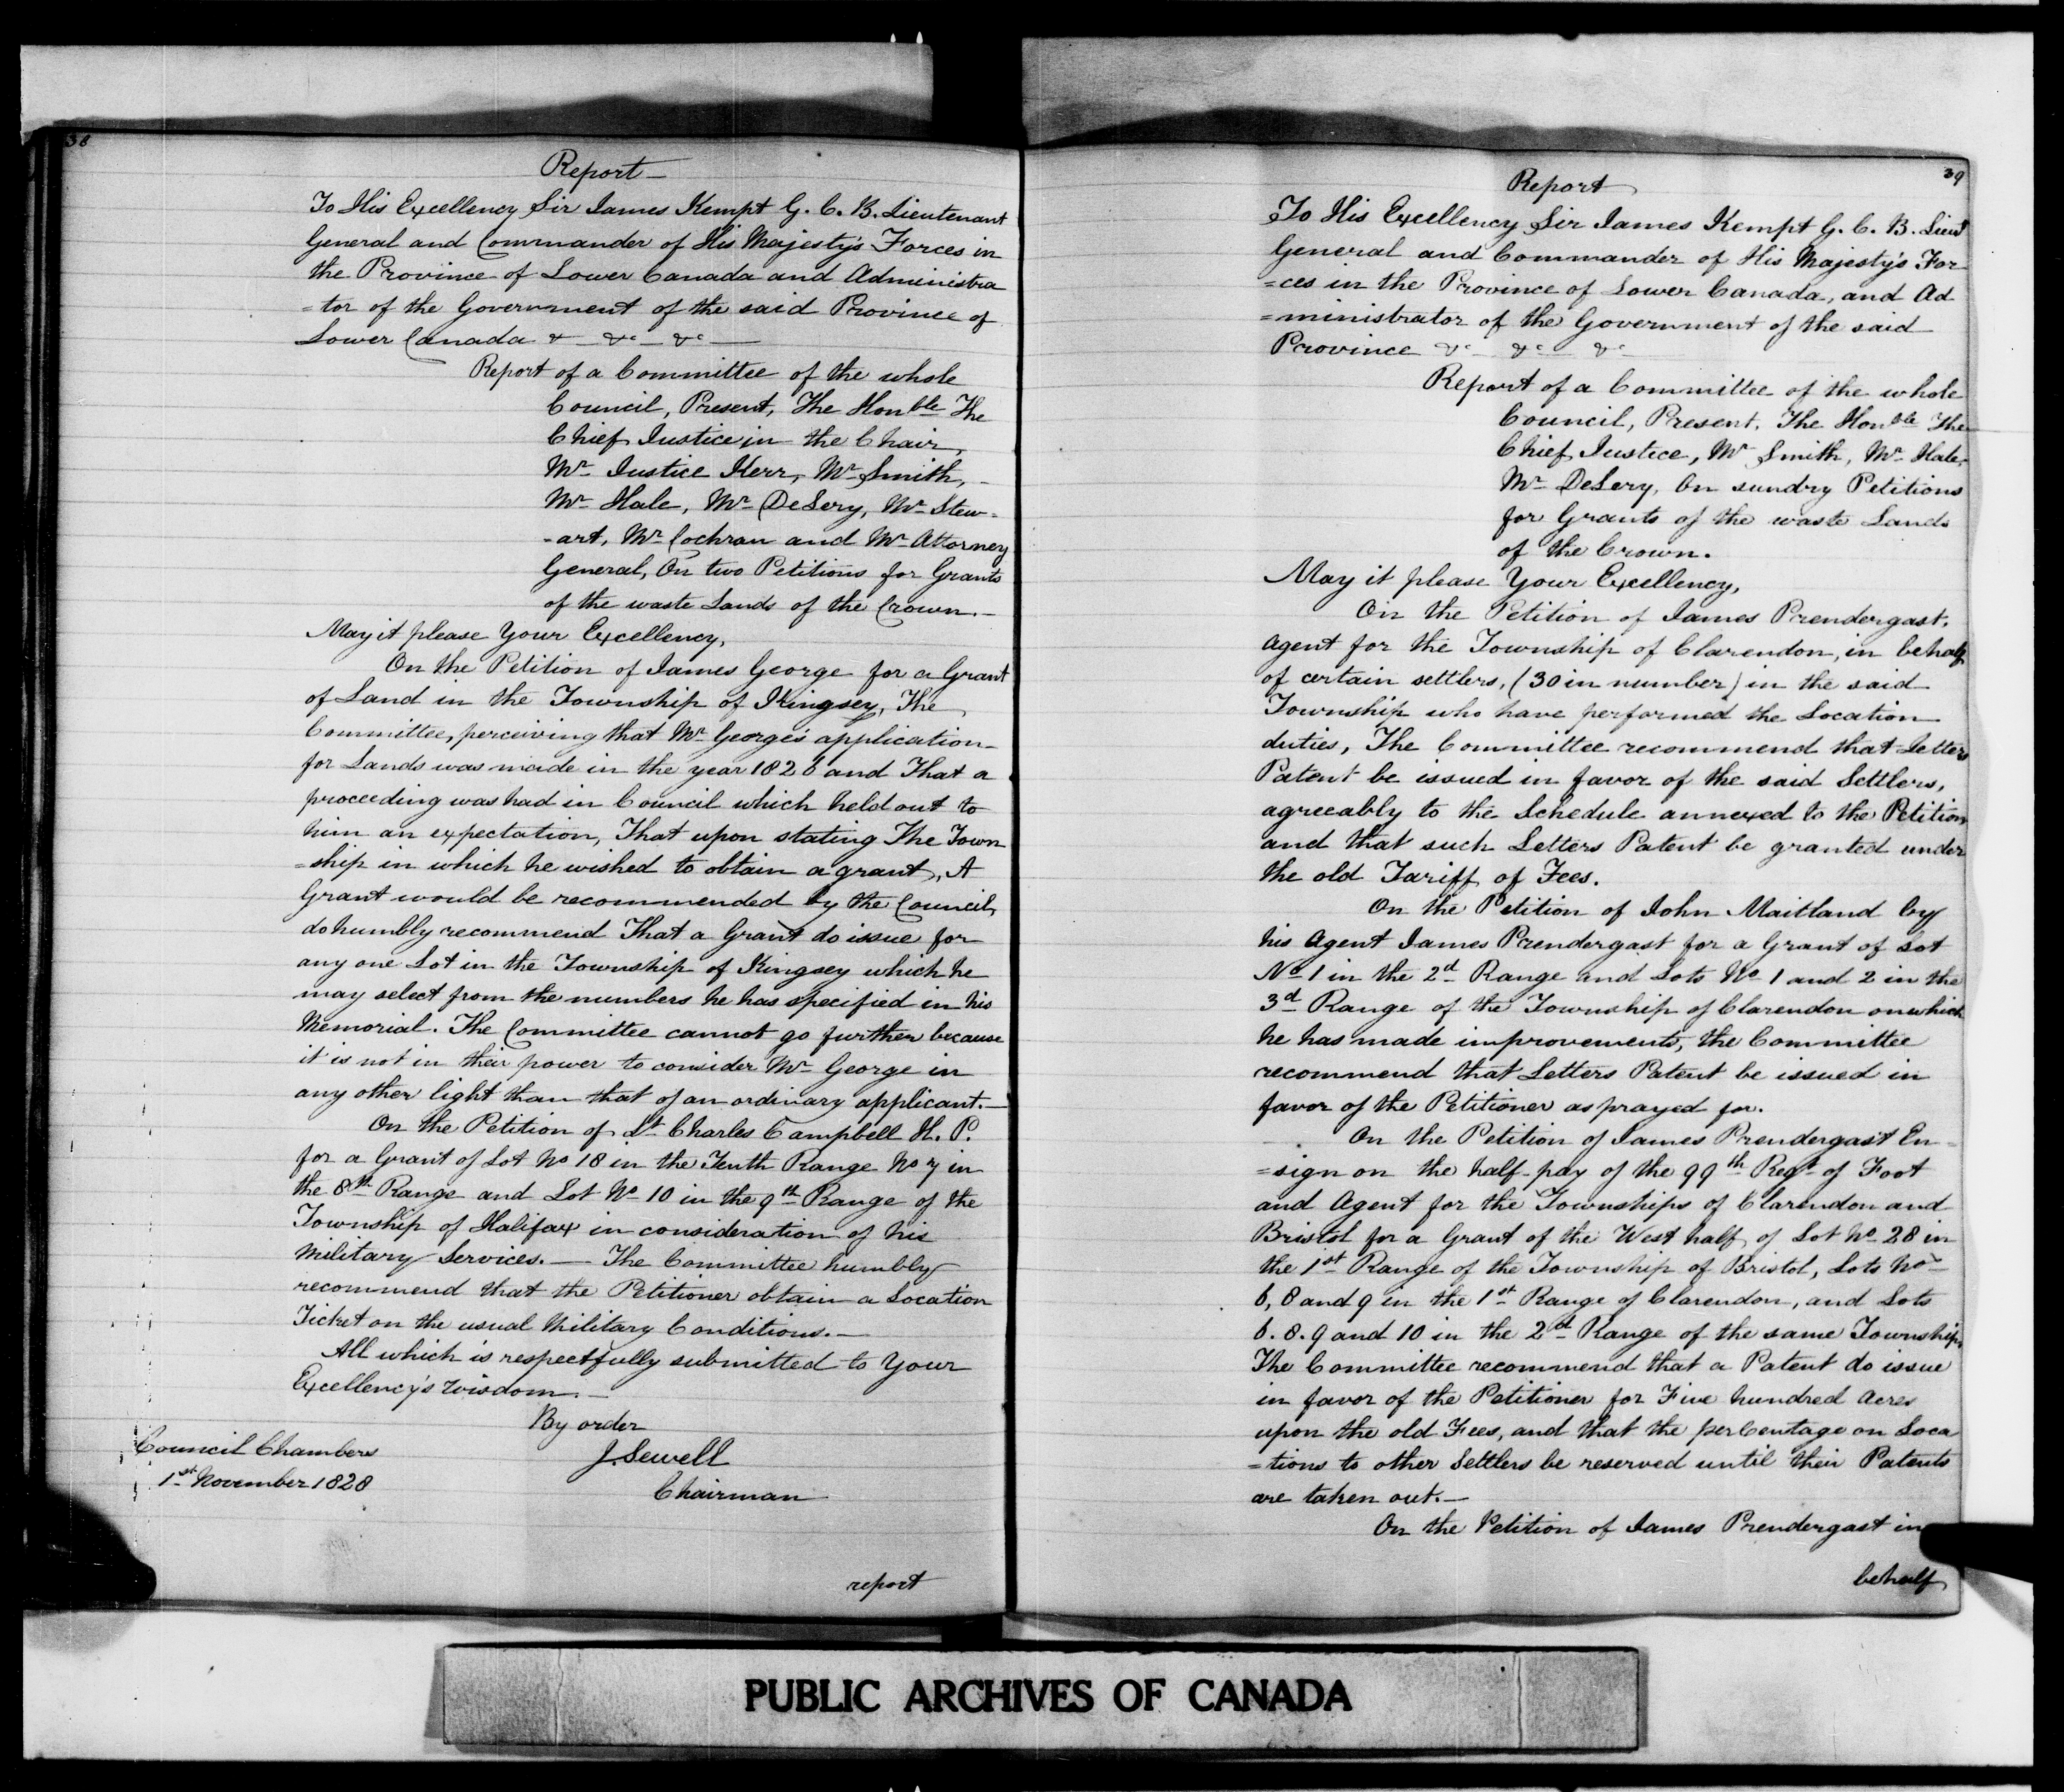 38
Report —
To His Excellency Sir James Kempt G. C. B. Lieutenant
General and Commander of His Majesty's Forces in
the Province of Lower Canada and Administra
=tor of the Government of the said Province of
Lower Canada &c — &c — &c —
Report of a Committee of the whole
Council, Present, The Honble The
Chief Justice in the Chair,
Mr Justice Kerr, Mr Smith, -
Mr Hale, Mr DeLery, Mr Stew-
-art, Mr Cochran and Mr Attorney
General, On two Petitions for Grants
of the waste Lands of the Crown. —
May it please Your Excellency,
On the Petition of James George for a Grant
of Land in the Township of Kingsey, The
Committee, perceiving that Mr George's application
for Lands was made in the year 1826 and That a
proceeding was had in Council which held out to
him an expectation, That upon stating The Town
=ship in which he wished to obtain a grant, A
Grant would be recommended by the Council,
do humbly recommend That a Grant do issue for
any one Lot in the Township of Kingsey which he
may select from the numbers he has specified in his
Memorial. The Committee cannot go further because
it is not in their power to consider Mr George in
any other light than that of an ordinary applicant. —
On the Petition of Lt Charles Campbell H. P.
for a Grant of Lot No 18 in the Tenth Range No 7 in
the 8th Range and Lot No 10 in the 9th Range of the
Township of Halifax in consideration of his
Military Services. — The Committee humbly
recommend that the Petitioner obtain a Location
Ticket on the usual Military Conditions. —
All which is respectfully submitted to Your
Excellency's wisdom. —
By order
Council Chambers
J. Sewell
1st November 1828
Chairman
report
39
Report
To His Excellency Sir James Kempt G. C. B. Lieut
General and Commander of His Majesty's For
=ces in the Province of Lower Canada, and Ad
=ministrator of the Government of the said
Province &c &c &c
Report of a Committee of the whole
Council, Present, The Honble The
Chief Justice, Mr Smith, Mr Hale,
Mr DeLery, On sundry Petitions
for Grants of the waste Lands
of the Crown.
May it please Your Excellency,
On the Petition of James Prendergast,
Agent for the Township of Clarendon, in behalf
of certain settlers, (30 in number) in the said
Township who have performed the Location
duties, The Committee recommend that Letters
Patent be issued in favor of the said Settlers,
agreeably to the Schedule annexed to the Petition
and that such Letters Patent be granted under
the old Tariff of Fees.
On the Petition of John Maitland by
his Agent James Prendergast for a Grant of Lot
No 1 in the 2d Range and Lots No 1 and 2 in the
3d Range of the Township of Clarendon on which
he has made improvements, the Committee
recommend that Letters Patent be issued in
favor of the Petitioner as prayed for.
On the Petition of James Prendergast En
=sign on the half-pay of the 99th Regt of Foot
and Agent for the Townships of Clarendon and
Bristol for a Grant of the West half of Lot No 28 in
the 1st Range of the Township of Bristol, Lots Nos
6, 8 and 9 in the 1st Range of Clarendon, and Lots
6. 8. 9 and 10 in the 2d Range of the same Township,
The Committee recommend that a Patent do issue
in favor of the Petitioner for Five hundred Acres
upon the old Fees, and that the perCentage on Loca
=tions to other Settlers be reserved until their Patents
are taken out. —
On the Petition of James Prendergast in
behalf
PUBLIC ARCHIVES OF CANADA